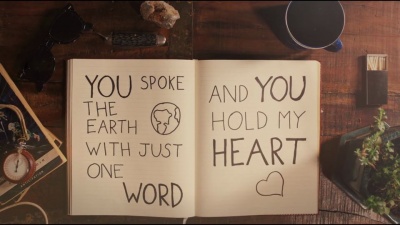 YOU SPOKE
THE
EARTH
WITH JUST
ONE
WORD
AND YOU
HOLD MY
HEART